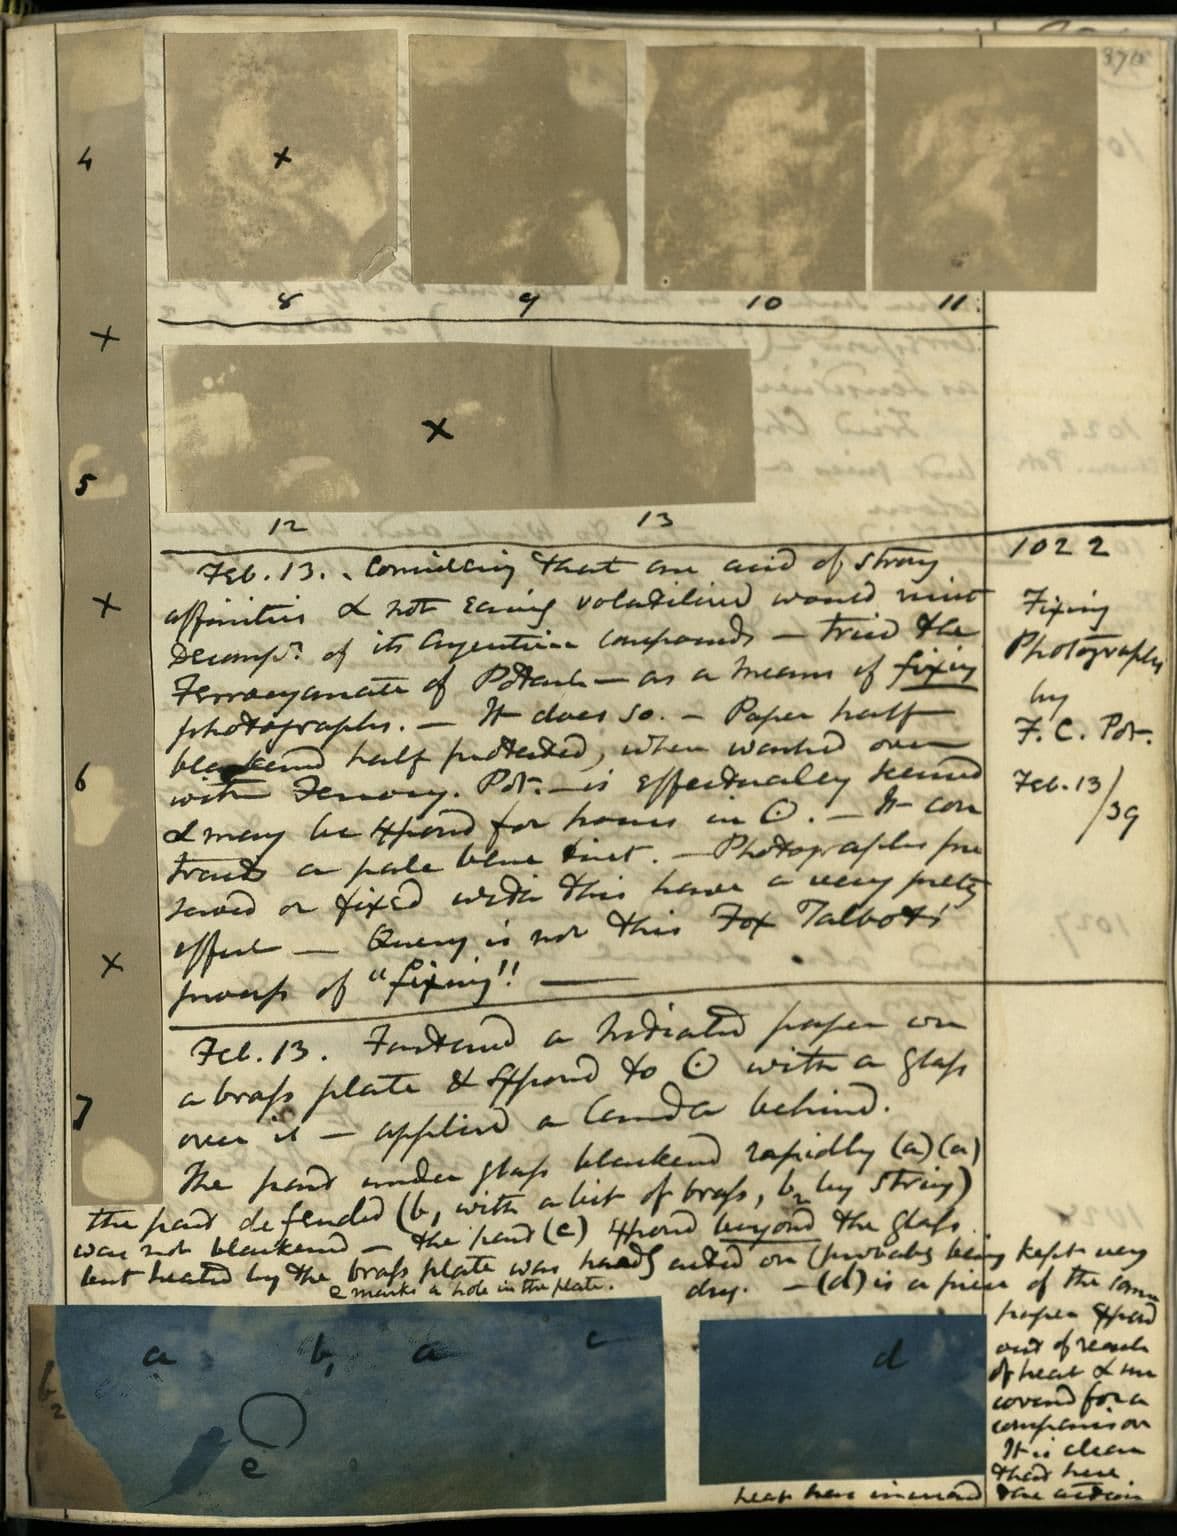 4
x
8
9
10
11
x
x
12
13
5
1022
Feb. 13. Considering that an acid of strong
affinities & not being volatilized would resist
Decomp.n of its Argentine compounds — tried the
Ferrocyanate of Potash — as a means of fixing
photographs. — It does so. — Paper half
blackened half protected, when washed over
with Ferrocy. Pot. — is effectually secured
& may be exposed for hours in ☉. — It con
tracts a pale blue tint. — Photographs pre
served or fixed with this have a very pretty
effect — Query is not this Fox Talbot's
process of "fixing"! —
Fixing
Photographs
by
F. C. Pot.
Feb. 13/39
x
6
x
7
Feb. 13. Fastened a paper on
a brass plate & exposed to ☉ with a glass
over it — applied a behind.
The part under glass blackened rapidly (a) (a)
the part defended (b, with a bit of brass, b2 by string)
was not blackened — the part (c) exposed beyond the glass
but heated by the brass plate was acted on (probably being kept very
dry. — (d) is a piece of the same
paper exposed
out of reach
of heat & un
covered for a
comparison
It is clear
that here
heat here increased the action
e marks a hole in the plate.
a
b,
a
c
b2
e
d